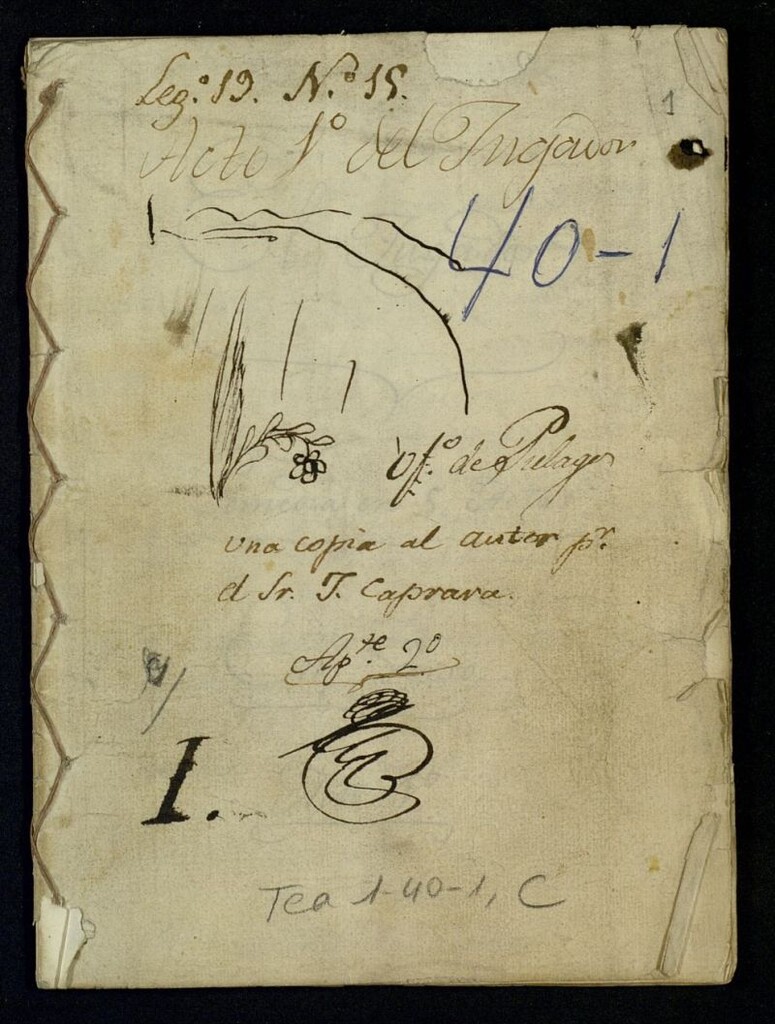 Leg.º 19. N.º 15.
1
Acto 1º del Jugador
40-1
de Pelayo
una copia al autor pr.
el Sr. T. Caprara.
Apte. 2º
1.
Tea 1-40-1, C